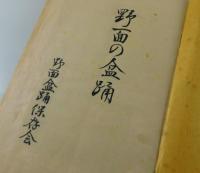 野面の盆踊
野面盆踊保存会